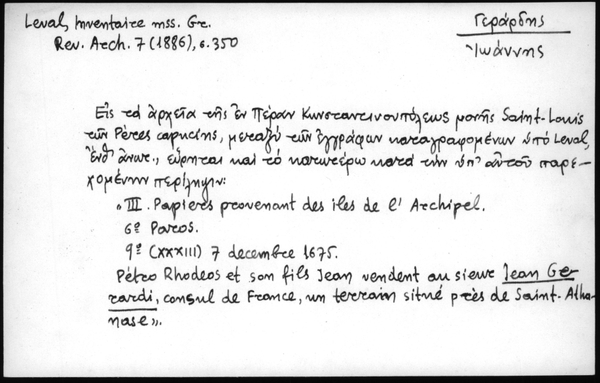 Leval, Inventaire mss. Gr.
Rev. Arch. 7 (1886), σ. 350
Γεράρδης
Ἰωάννης
Εἰς τὰ ἀρχεῖα τῆς ἐν Πέραν Κωνσταντινουπόλεως μονῆς Saint-Louis
τῶν Pères capucins, μεταξὺ τῶν ἐγγράφων καταγραφομένων ὑπὸ Leval,
ἔνθ' ἀνωτ., εὕρηται καὶ τὸ κατωτέρω κατὰ τὴν ὑπ' αὐτοῦ παρε-
χομένην περίληψιν:
« III. Papiers provenant des iles de l' Archipel.
6º Paros.
9º (XXXIII) 7 decembre 1675.
Pétro Rhodeos et son fils Jean vendent au sieur Jean Ge-
rardi, consul de France, un terrain situé près de Saint-Atha-
nase».